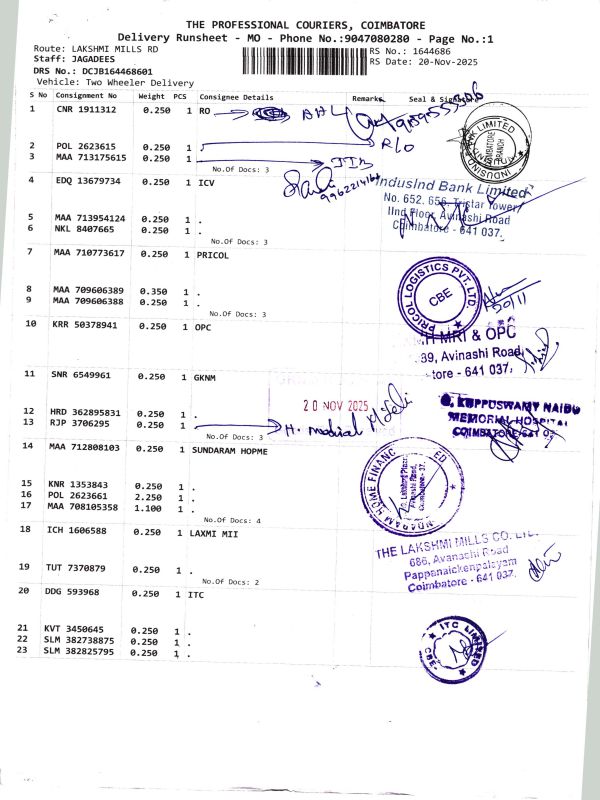 THE PROFESSIONAL COURIERS, COIMBATORE
Delivery Runsheet - MO - Phone No.:9047080280 - Page No.:1
Route: LAKSHMI MILLS RD
RS No.: 1644686
Staff: JAGADEES
RS Date: 20-Nov-2025
DRS No.: DCJB164468601
Vehicle: Two Wheeler Delivery
S No Consignment No Weight PCS Consignee Details Remarks Seal & Signature
1 CNR 1911312 0.250 1 RO
2 POL 2623615 0.250 1 . R/o
3 MAA 713175615 0.250 1 .
No.Of Docs: 3
4 EDQ 13679734 0.250 1 ICV
IndusInd Bank Limited
No. 652, 656, Tristar Tower
IInd Floor, Avinashi Road
Coimbatore - 641 037.
5 MAA 713954124 0.250 1 .
6 NKL 8407665 0.250 1 .
No.Of Docs: 3
7 MAA 710773617 0.250 1 PRICOL
PRICOL LOGISTICS PVT. LTD.
CBE
20/11
8 MAA 709606389 0.350 1 .
9 MAA 709606388 0.250 1 .
No.Of Docs: 3
10 KRR 50378941 0.250 1 OPC
MRI & OPC
39, Avinashi Road,
tore - 641 037.
11 SNR 6549961 0.250 1 GKNM
20 NOV 2025
G. KUPPUSWAMY NAIDU
MEMORIAL HOSPITAL
COIMBATORE-641 037
12 HRD 362895831 0.250 1 .
13 RJP 3706295 0.250 1 .
No.Of Docs: 3
14 MAA 712808103 0.250 1 SUNDARAM HOPME
15 KNR 1353843 0.250 1 .
16 POL 2623661 2.250 1 .
17 MAA 708105358 1.100 1 .
No.Of Docs: 4
18 ICH 1606588 0.250 1 LAXMI MII
THE LAKSHMI MILLS CO. LTD.
686, Avanashi Road
Pappanaickenpalayam
Coimbatore - 641 037.
19 TUT 7370879 0.250 1 .
No.Of Docs: 2
20 DDG 593968 0.250 1 ITC
ITC LIMITED
CBE
21 KVT 3450645 0.250 1 .
22 SLM 382738875 0.250 1 .
23 SLM 382825795 0.250 1 .